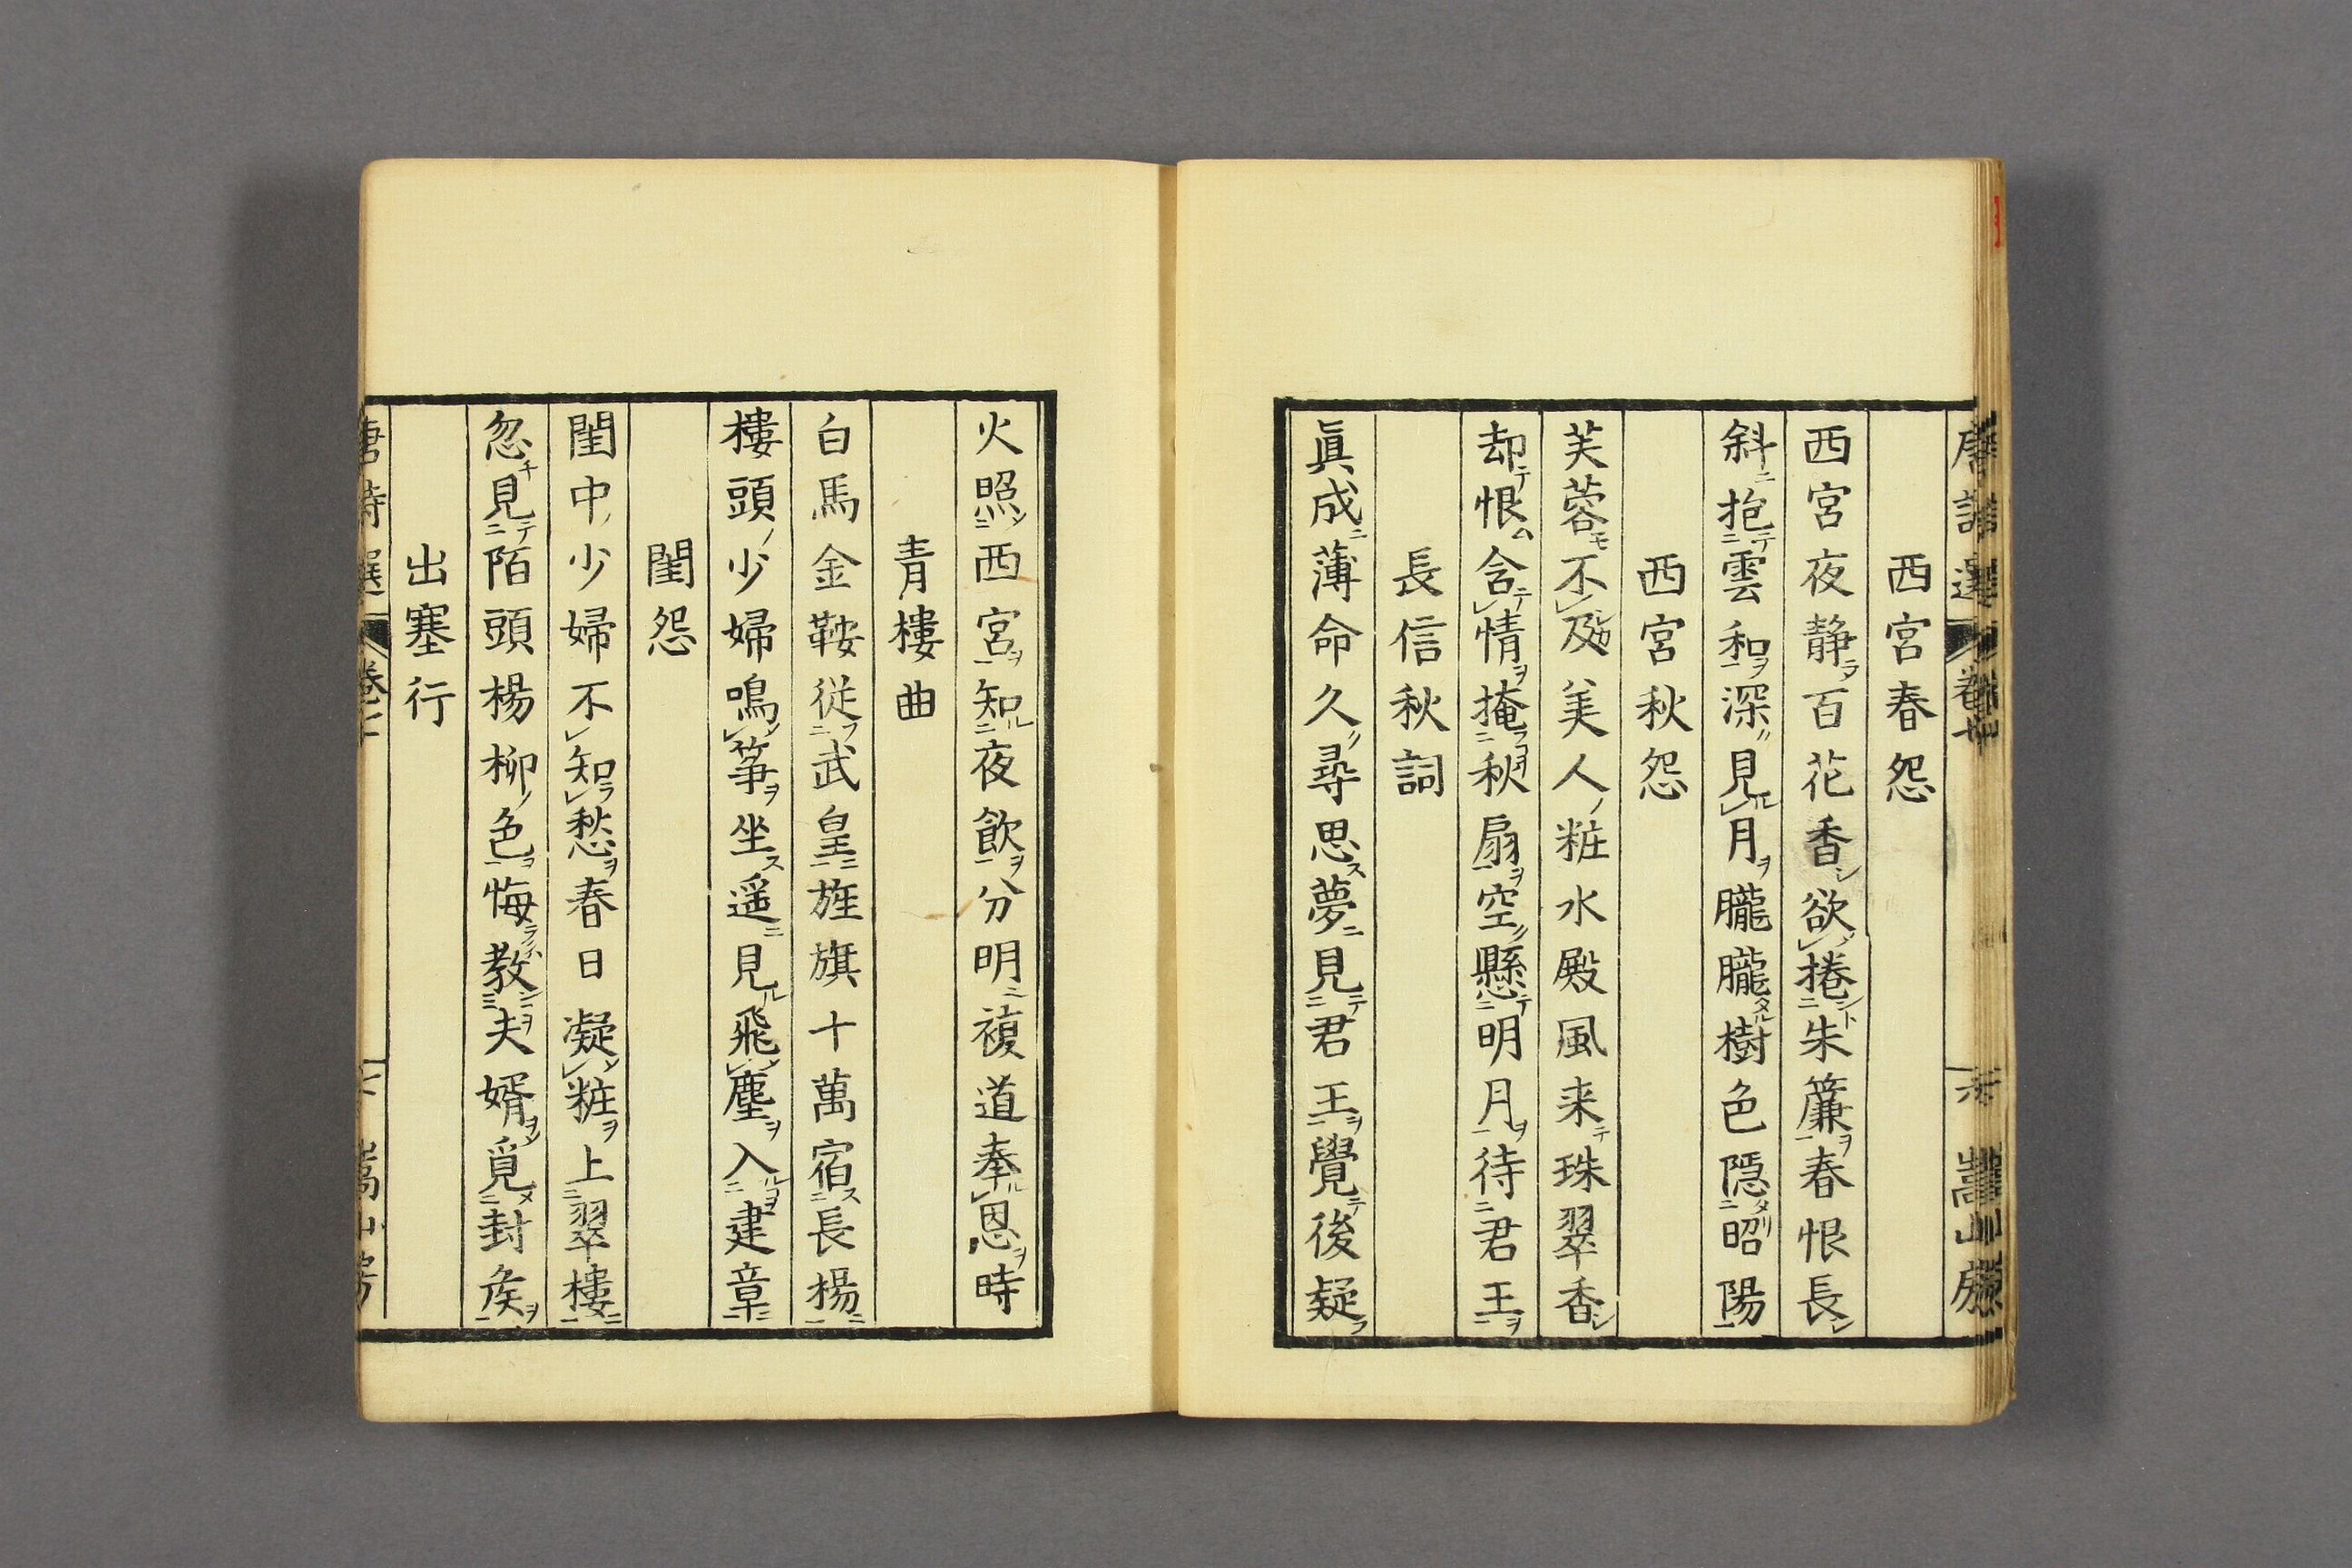 西宮春怨
西宮夜静百花香欲捲朱簾春恨長
斜抱雲和深見月朧朧樹色隠昭陽
西宮秋怨
芙蓉不及美人粧水殿風来珠翠香
却恨含情掩秋扇空懸明月待君王
長信秋詞
眞成薄命久尋思夢見君王覺後疑
火照西宮知夜飲分明複道奉恩時
青樓曲
白馬金鞍従武皇旌旗十萬宿長楊
樓頭少婦鳴筝坐遥見飛塵入建章
閨怨
閨中少婦不知愁春日凝粧上翠樓
忽見陌頭楊柳色悔教夫婿覓封矦
出塞行
唐詩選 卷七 嵩山房